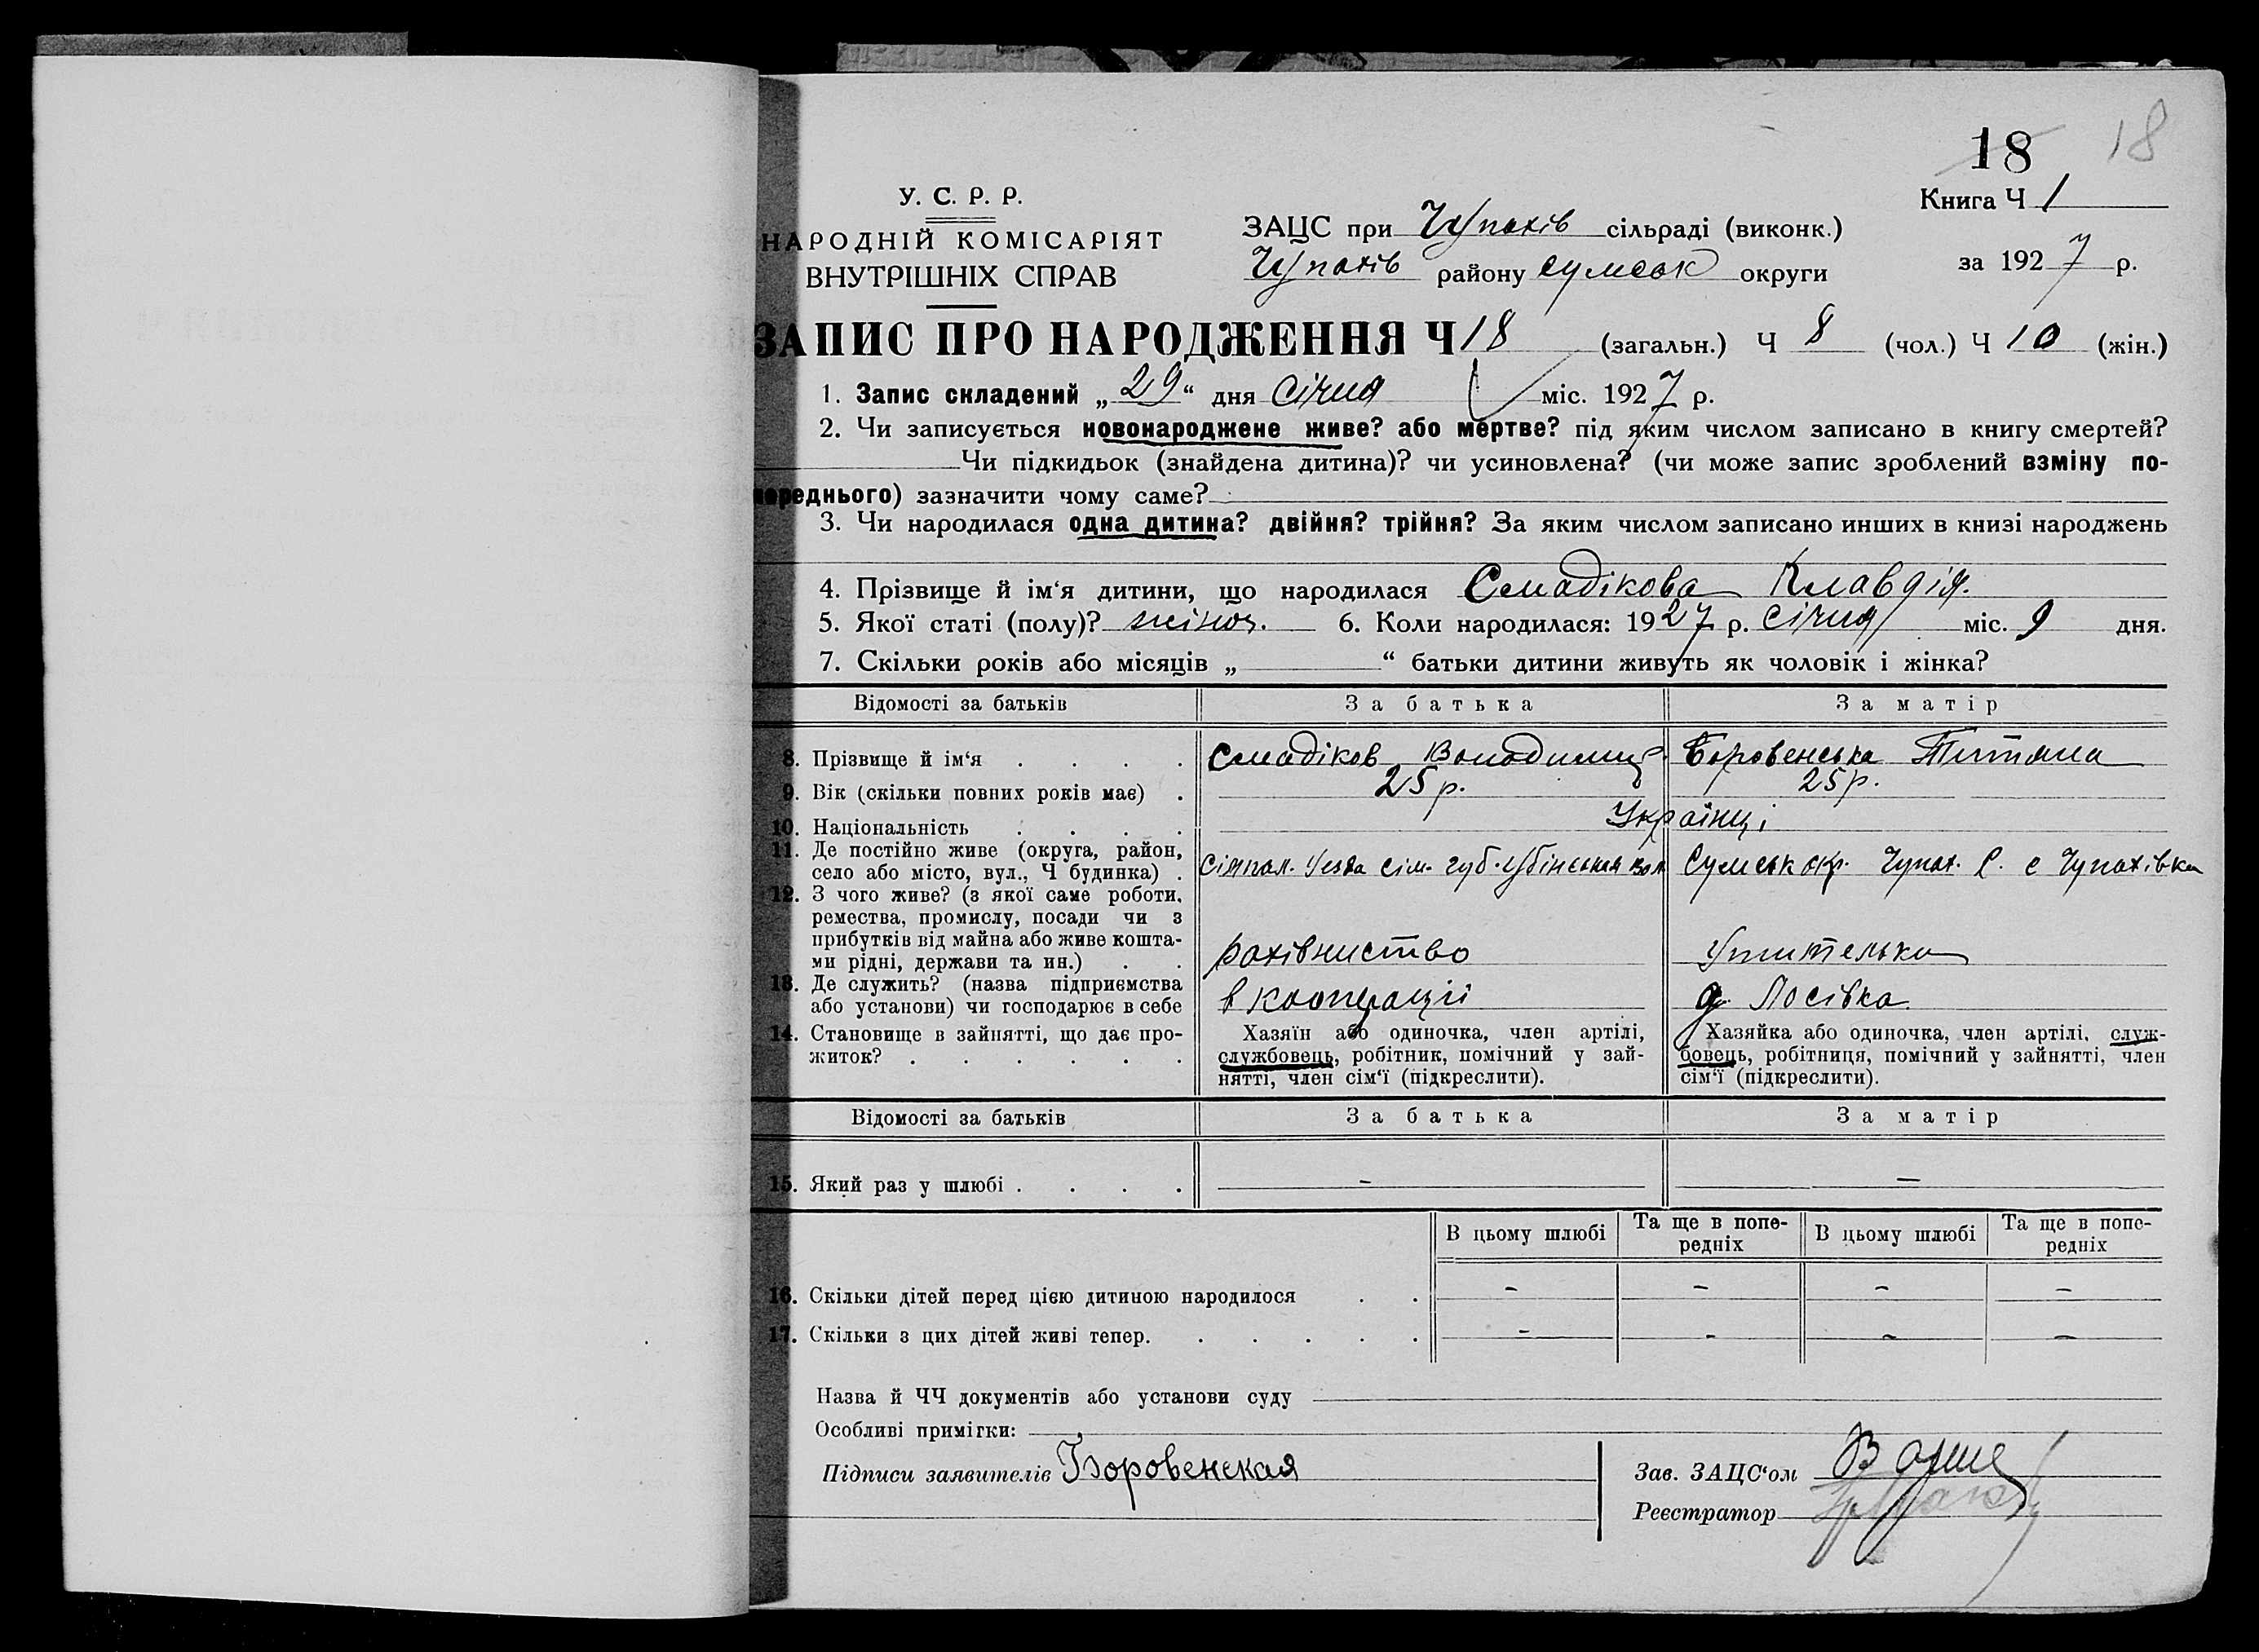 18 18
У. С. Р. Р.
НАРОДНІЙ КОМІСАРІЯТ
ВНУТРІШНІХ СПРАВ
ЗАЦС при Чупахів сільраді (виконк.)
Чупахів району Сумськ округи
Книга Ч 1
за 1927 р.
ЗАПИС ПРО НАРОДЖЕННЯ Ч 18 (загальн.) Ч 8 (чол.) Ч 10 (жін.)
1. Запис складений „29“ дня Січня міс. 1927 р.
2. Чи записується новонароджене живе? або мертве? під яким числом записано в книгу смертей?
Чи підкидьок (знайдена дитина)? чи усиновлена? (чи може запис зроблений взміну по-
переднього) зазначити чому саме?
3. Чи народилася одна дитина? двійня? трійня? За яким числом записано инших в книзі народжень
4. Прізвище й ім‘я дитини, що народилася Смадікова Клавдія.
5. Якої статі (полу)? жіноч. 6. Коли народилася: 1927 р. Січня міс. 9 дня.
7. Скільки років або місяців „ “ батьки дитини живуть як чоловік і жінка?
Відомості за батьків За батька За матір
8. Прізвище й ім‘я . . . . Смадіков Володимир Боровенська Титяна
9. Вік (скільки повних років має) . 25 р. 25 р.
10. Національність . . . . Українці
11. Де постійно живе (округа, район,
село або місто, вул., Ч будинка) . Сум. губ. Сумськ окр. Чупах. Р. с Чупахівка
12. З чого живе? (з якої саме роботи,
ремества, промислу, посади чи з
прибутків від майна або живе кошта-
ми рідні, держави та ин.) . . рахівництво Учителька
13. Де служить? (назва підприємства
або установи) чи господарює в себе в кооперації Лосівка
14. Становище в зайнятті, що дає про-
житок? . . . . . .
Хазяїн або одиночка, член артілі,
службовець, робітник, помічний у зай-
нятті, член сім‘ї (підкреслити).
Хазяйка або одиночка, член артілі, служ-
бовець, робітниця, помічний у зайнятті, член
сім‘ї (підкреслити).
Відомості за батьків За батька За матір
15. Який раз у шлюбі . . . . – –
В цьому шлюбі Та ще в попе-редніх В цьому шлюбі Та ще в попе-редніх
16. Скільки дітей перед цією дитиною народилося . . – – – –
17. Скільки з цих дітей живі тепер. . . . . . – – – –
Назва й ЧЧ документів або установи суду
Особливі примітки:
Підписи заявителів Боровенская
Зав. ЗАЦС‘ом
Реєстратор